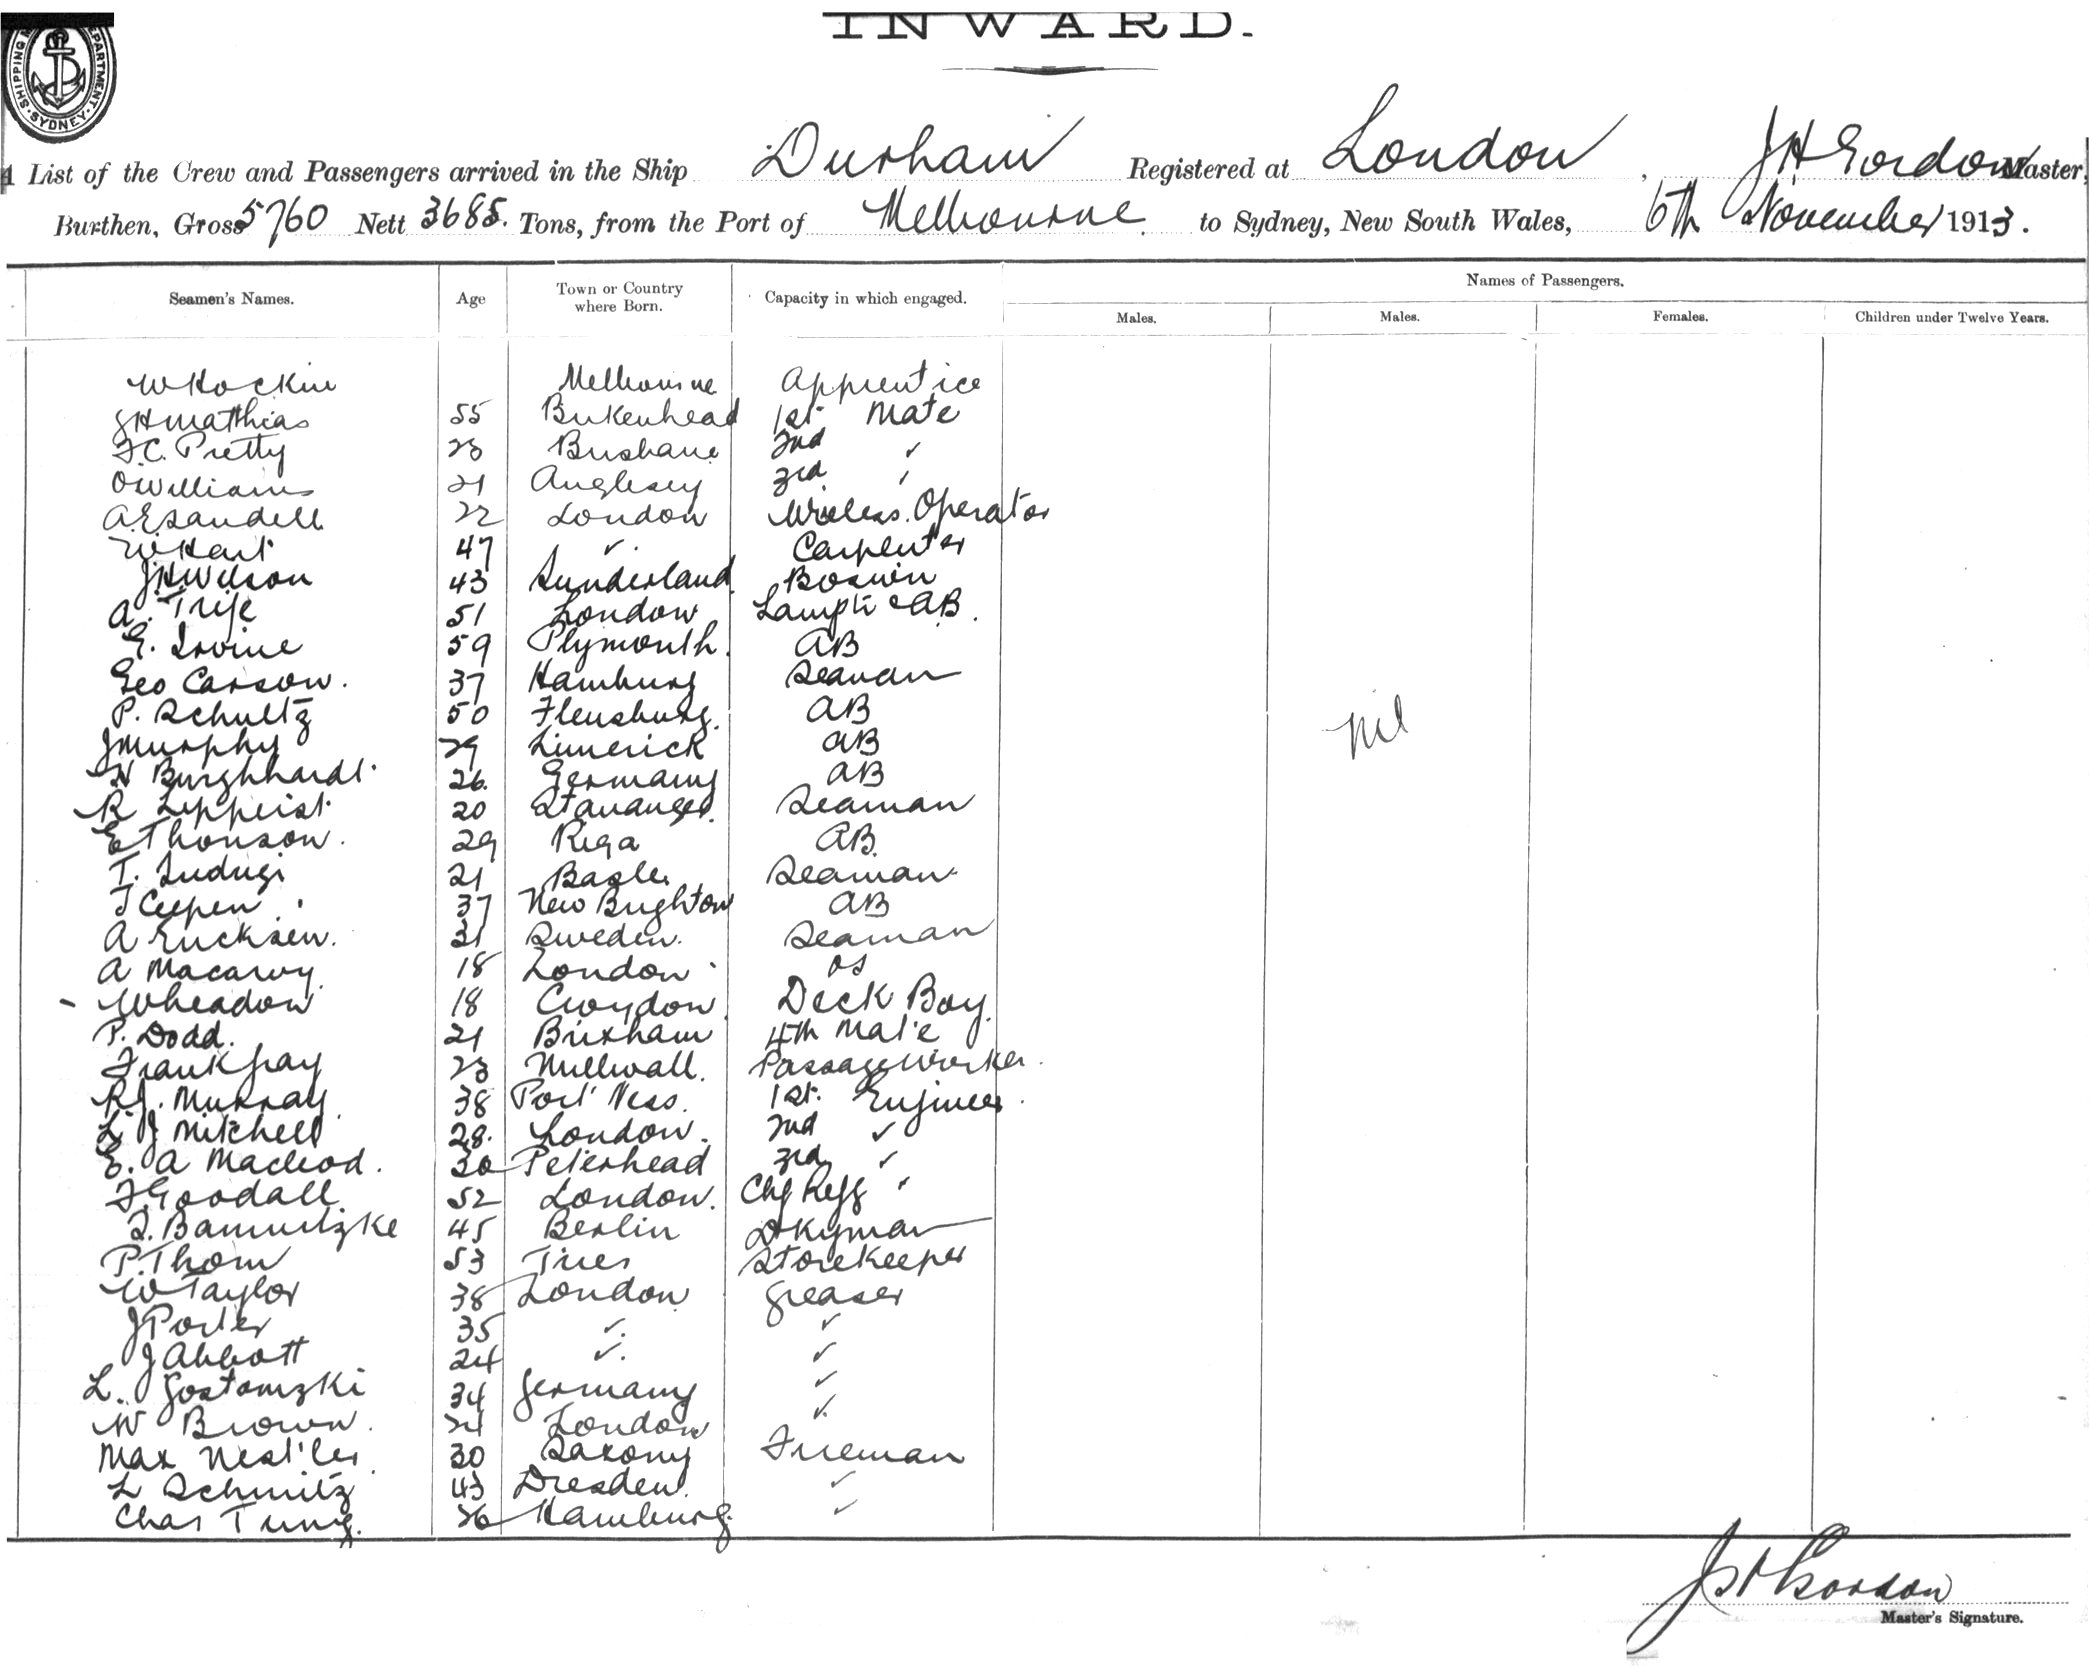 INWARD.
SHIPPING DEPARTMENT. SYDNEY.
A List of the Crew and Passengers arrived in the Ship Durham Registered at London, J H Gordon Master,
Burthen, Gross 5760 Nett 3685. Tons, from the Port of Melbourne to Sydney, New South Wales, 6th November 1913.
Names of Passengers.
Seamen's Names. Age Town or Country where Born. Capacity in which engaged. Males. Males. Females. Children under Twelve Years.
W Hockin Melbourne Apprentice
J H Matthias 55 Birkenhead 1st Mate
F.C. Pretty 23 Brisbane 2nd ✓
O Williams 21 Anglesey 3rd ✓
A.E Sandell 22 London Wireless Operator
W Hart 47 ✓ Carpenter
J H Wilson 43 Sunderland Boswin
A. 51 London Lamptr & AB.
E. Irvine 59 Plymouth. AB
Geo Carson. 37 Hamburg Seaman
P. Schultz 50 Flensburg. AB
J Murphy 29 Limerick AB
H Burghhardt. 26. Germany AB
R 20 Stavanger. Seaman
E Thonson. 29 Riga AB.
T. 21 Basle Seaman
T Ceepen. 37 New Brighton AB
A Ericksen. 31 Sweden. Seaman
A 18 London OS
Wheadon 18 Croydon Deck Boy.
P. Dodd. 21 Brixham 4th Mate
Frank Gray 23 Millwall. Passage Worker.
R.J. Murray. 38 Port Ness. 1st. Engineer.
L J Mitchell 28. London. 2nd ✓
E. A Macleod. 30 Peterhead 3rd ✓
F Goodall 52 London. Chf Refg ✓
45 Berlin Dkyman
P. Thom 53 Storekeeper
W Taylor 38 London Greaser
J Porter 35 ✓. ✓
J Abbott 24 ✓. ✓
L. Gostomzki 34 Germany ✓
W Brown. 24 London ✓.
Max Nestler. 30 Saxony Fireman
L Schmitz 43 Dresden. ✓
Chas Tung. 26 Hamburg. ✓
Nil
J H Gordon
Master's Signature.